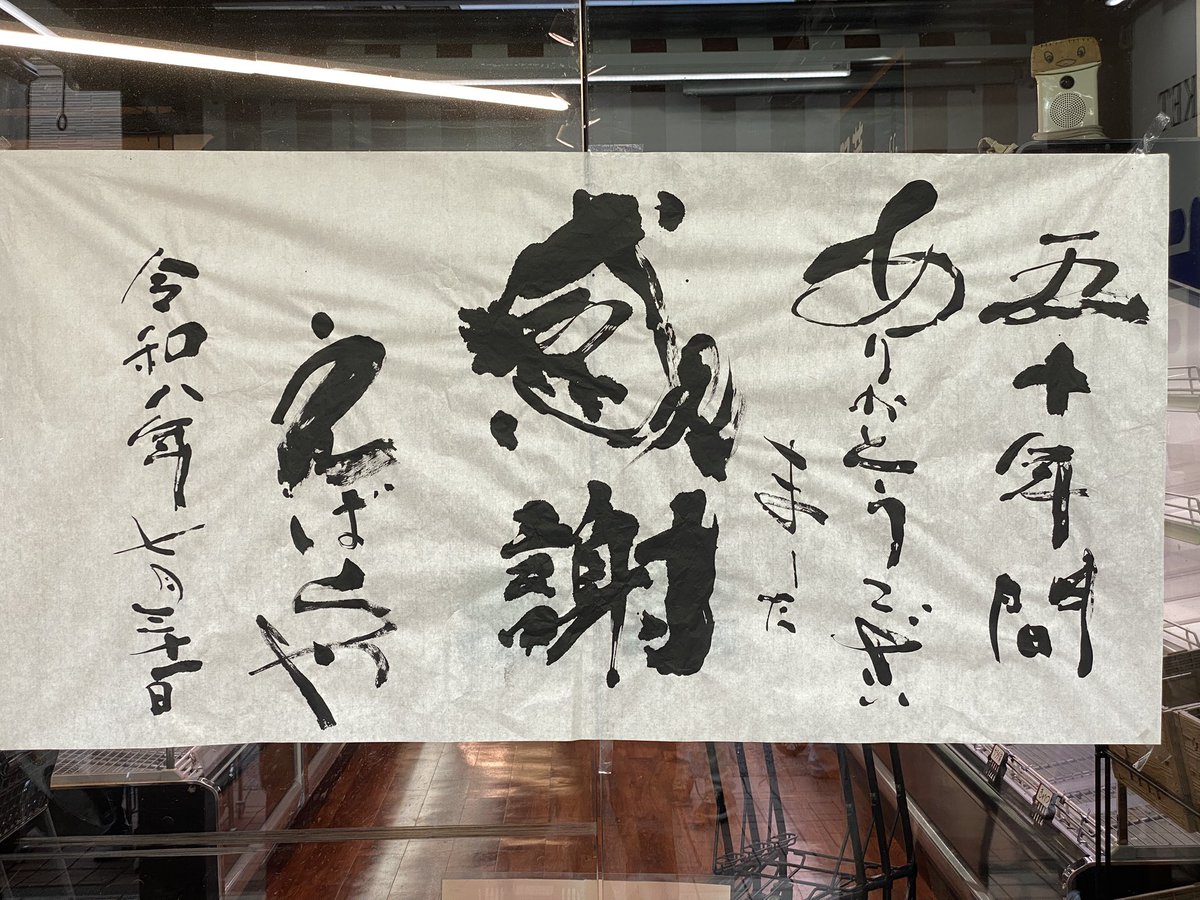 五十年間
ありがとうござい
ました
感謝
令和八年七月三十一日
KET